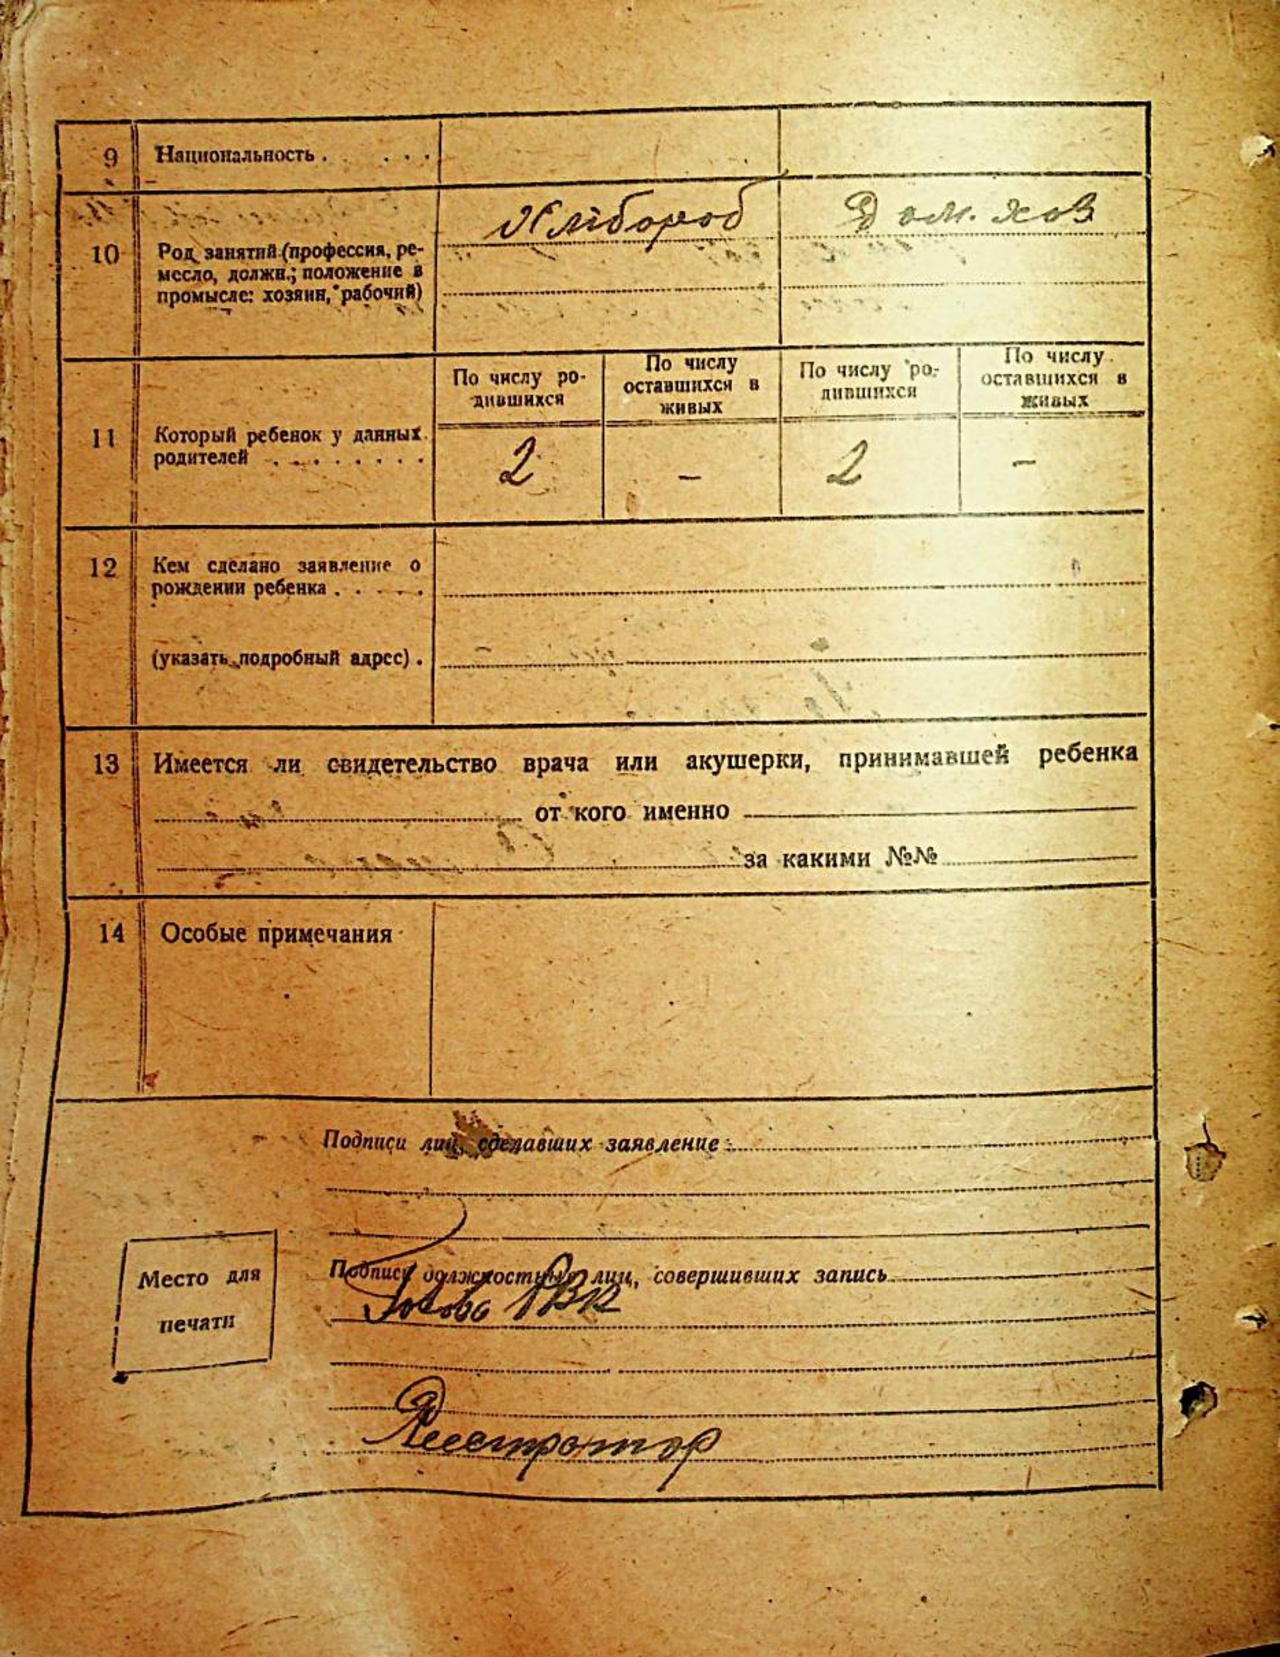 9 Национальность . . . . .
Хлібороб Дом. хоз
10 Род занятий (профессия, ре-
месло, должн.; положение в
промысле: хозяин, рабочий)
По числу ро-
дившихся
По числу
оставшихся в
живых
По числу ро-
дившихся
По числу
оставшихся в
живых
11 Который ребенок у данных
родителей . . . . . . . .
2 – 2 –
12 Кем сделано заявление о
рождении ребенка . . . . .
(указать подробный адрес) .
13 Имеется ли свидетельство врача или акушерки, принимавшей ребенка
от кого именно
за какими №№
14 Особые примечания
Подписи лиц, сделавших заявление:
Место для
печати
Подписи должностных лиц, совершивших запись
Голова РВК
Реестратор